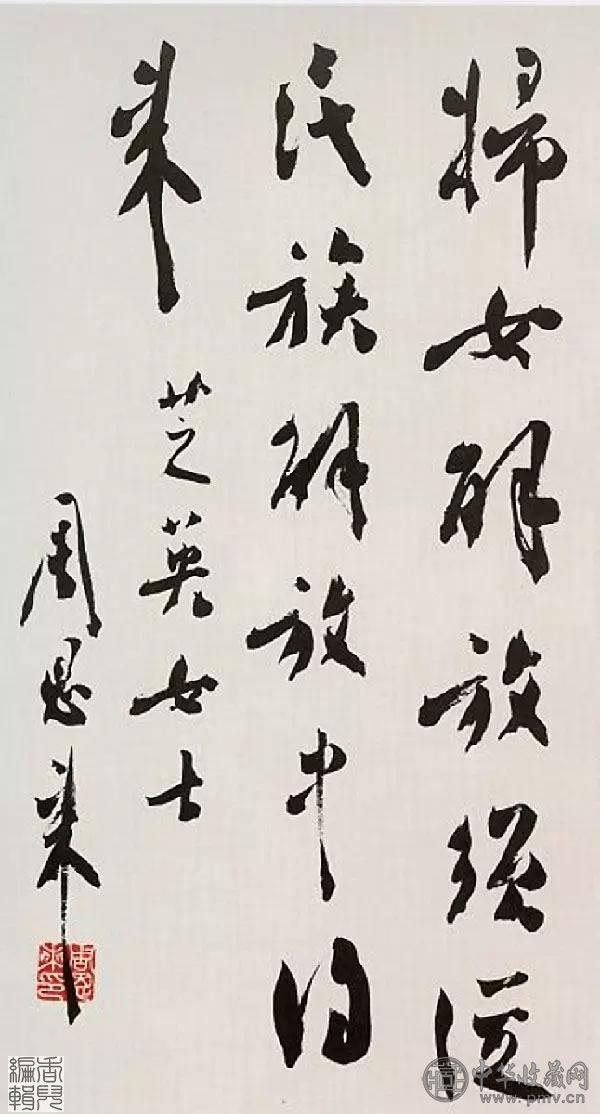 婦女解放須從
民族解放中得
来
芝英女士
周恩来
周恩來印
香兒編輯
中华收藏网
www.pmv.cn